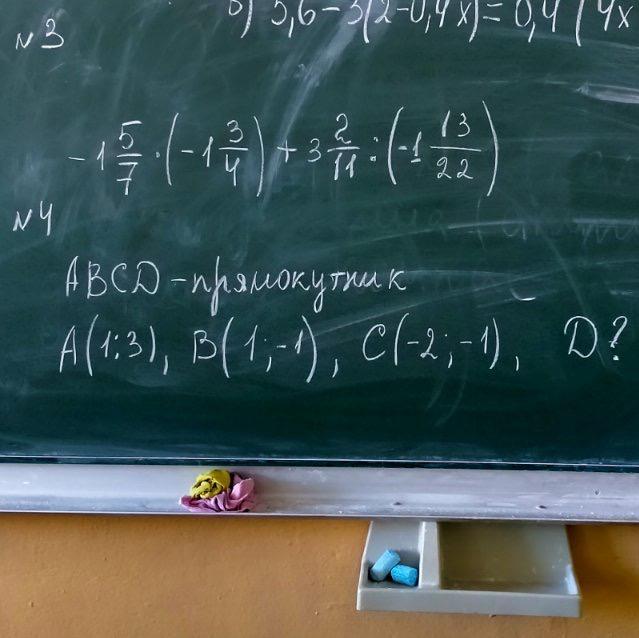 б) 5,6-3(2-0,4x)=0,4(4x
№3
-1 5/7 · (-1 3/4) + 3 2/11 : (-1 13/22)
№4
ABCD - прямокутник
A(1;3), B(1;-1), C(-2;-1), D?